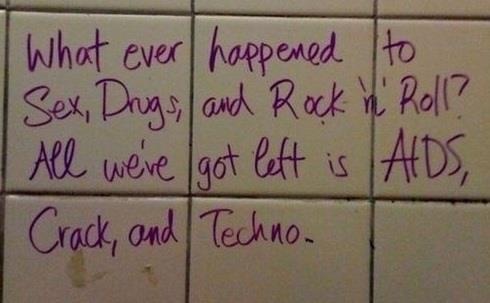 What ever happened to
Sex, Drugs, and Rock 'n' Roll?
All we've got left is AIDS,
Crack, and Techno.